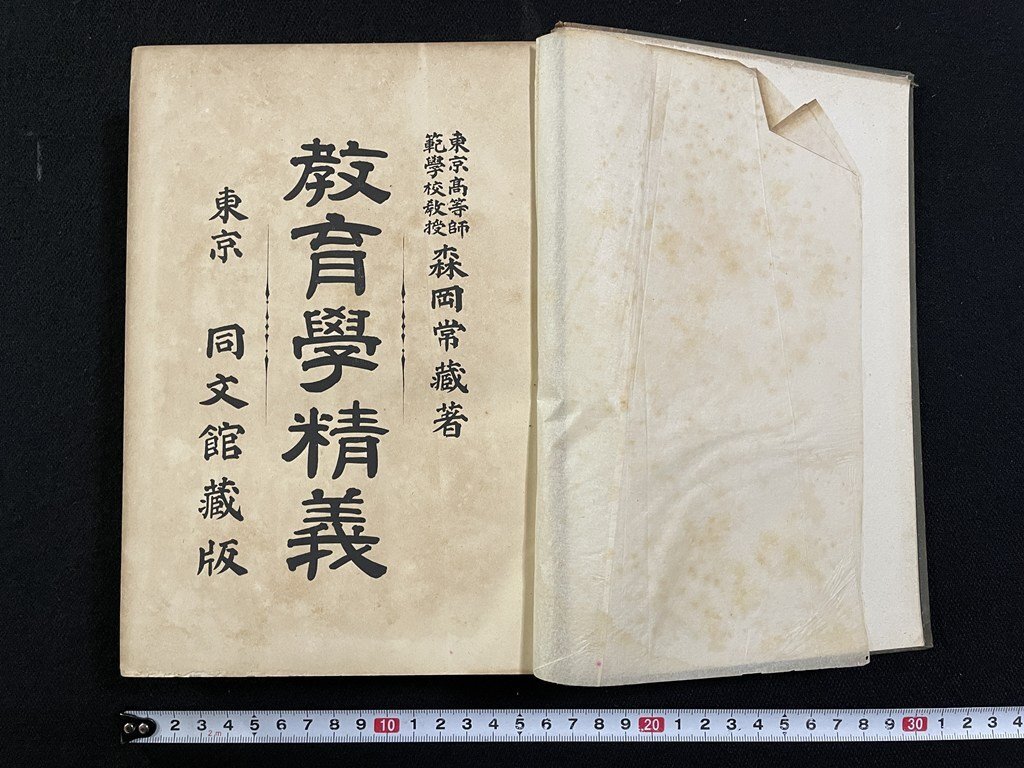 東京高等師
範學校教授
森岡常藏著
教育學精義
東京 同文館藏版
2 3 4 5 6 7 8 9 10 1 2 3 4 5 6 7 8 9 20 1 2 3 4 5 6 7 8 9 30 1 2 3 4
2m